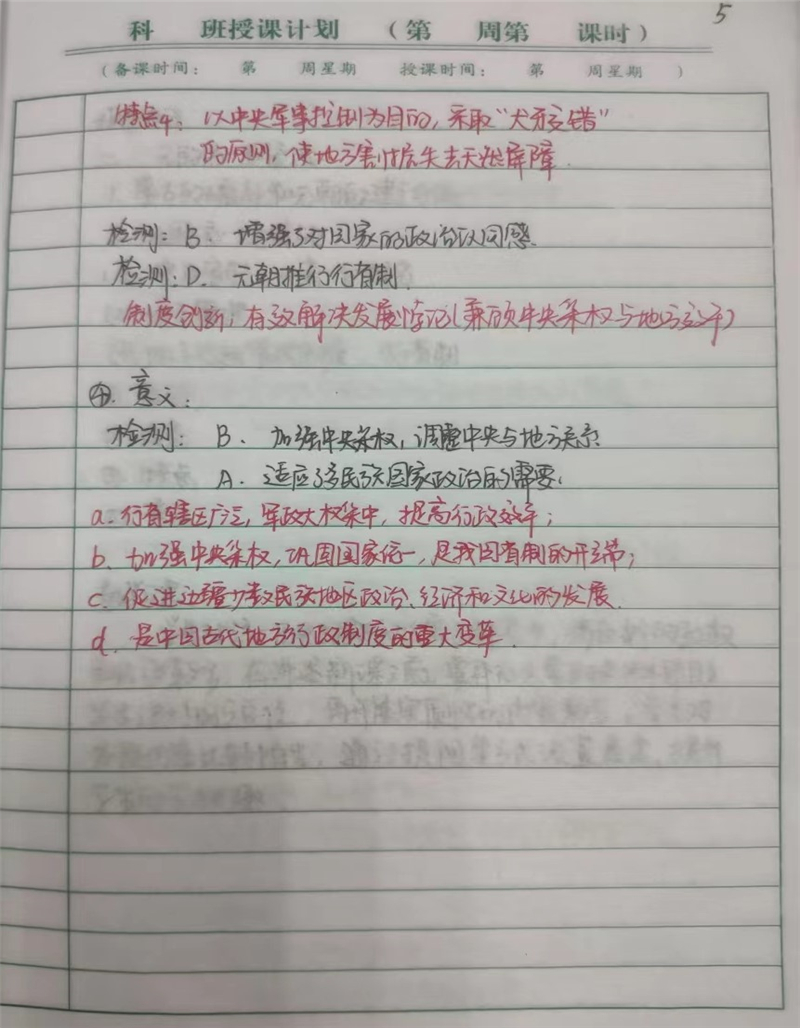 5
科 班授课计划 (第 周第 课时)
(备课时间: 第 周星期 授课时间: 第 周星期 )
特点4: 以中央军事控制为目的,采取“犬牙交错”
的原则,使地方割据失去天然屏障.
检测: B. 增强了对国家的政治认同感.
检测: D. 元朝推行行省制.
制度创新,有效解决发展悖论(兼顾中央集权与地方)
④. 意义:
检测: B. 加强中央集权,调整中央与地方关系
A. 适应了多民族国家政治的需要.
a. 行省辖区广泛,军政大权集中,提高行政效率;
b. 加强中央集权,巩固国家统一,是我国省制的开端;
c. 促进边疆少数民族地区政治、经济和文化的发展.
d. 是中国古代地方行政制度的重大变革.